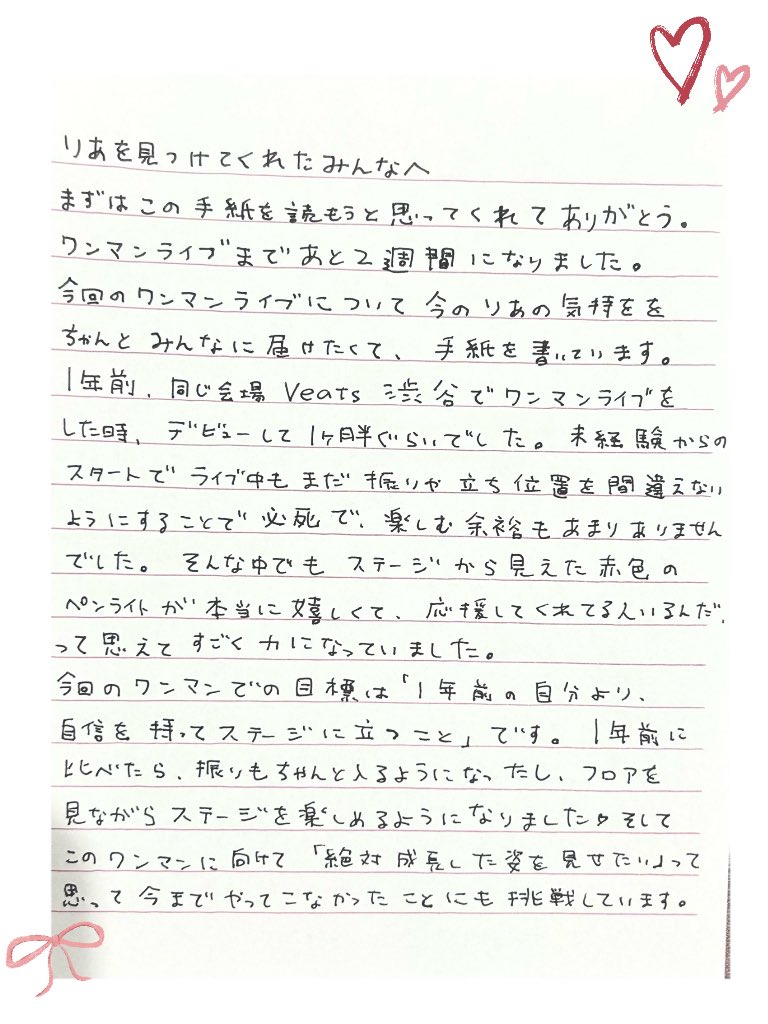 りあを見つけてくれたみんなへ
まずはこの手紙を読もうと思ってくれてありがとう。
ワンマンライブまであと2週間になりました。
今回のワンマンライブについて今のりあの気持をを
ちゃんとみんなに届けたくて、手紙を書いています。
1年前、同じ会場 Veats 渋谷でワンマンライブを
した時、デビューして1ヶ月半ぐらいでした。未経験からの
スタートでライブ中もまだ振りや立ち位置を間違えない
ようにすることで必死で、楽しむ余裕もあまりありません
でした。そんな中でもステージから見えた赤色の
ペンライトが本当に嬉しくて、応援してくれてる人いるんだ、
って思えてすごく力になっていました。
今回のワンマンでの目標は「1年前の自分より、
自信を持ってステージに立つこと」です。1年前に
比べたら、振りもちゃんと入るようになったし、フロアを
見ながらステージを楽しめるようになりました♡そして
このワンマンに向けて「絶対成長した姿を見せたい」って
思って今までやってこなかったことにも挑戦しています。